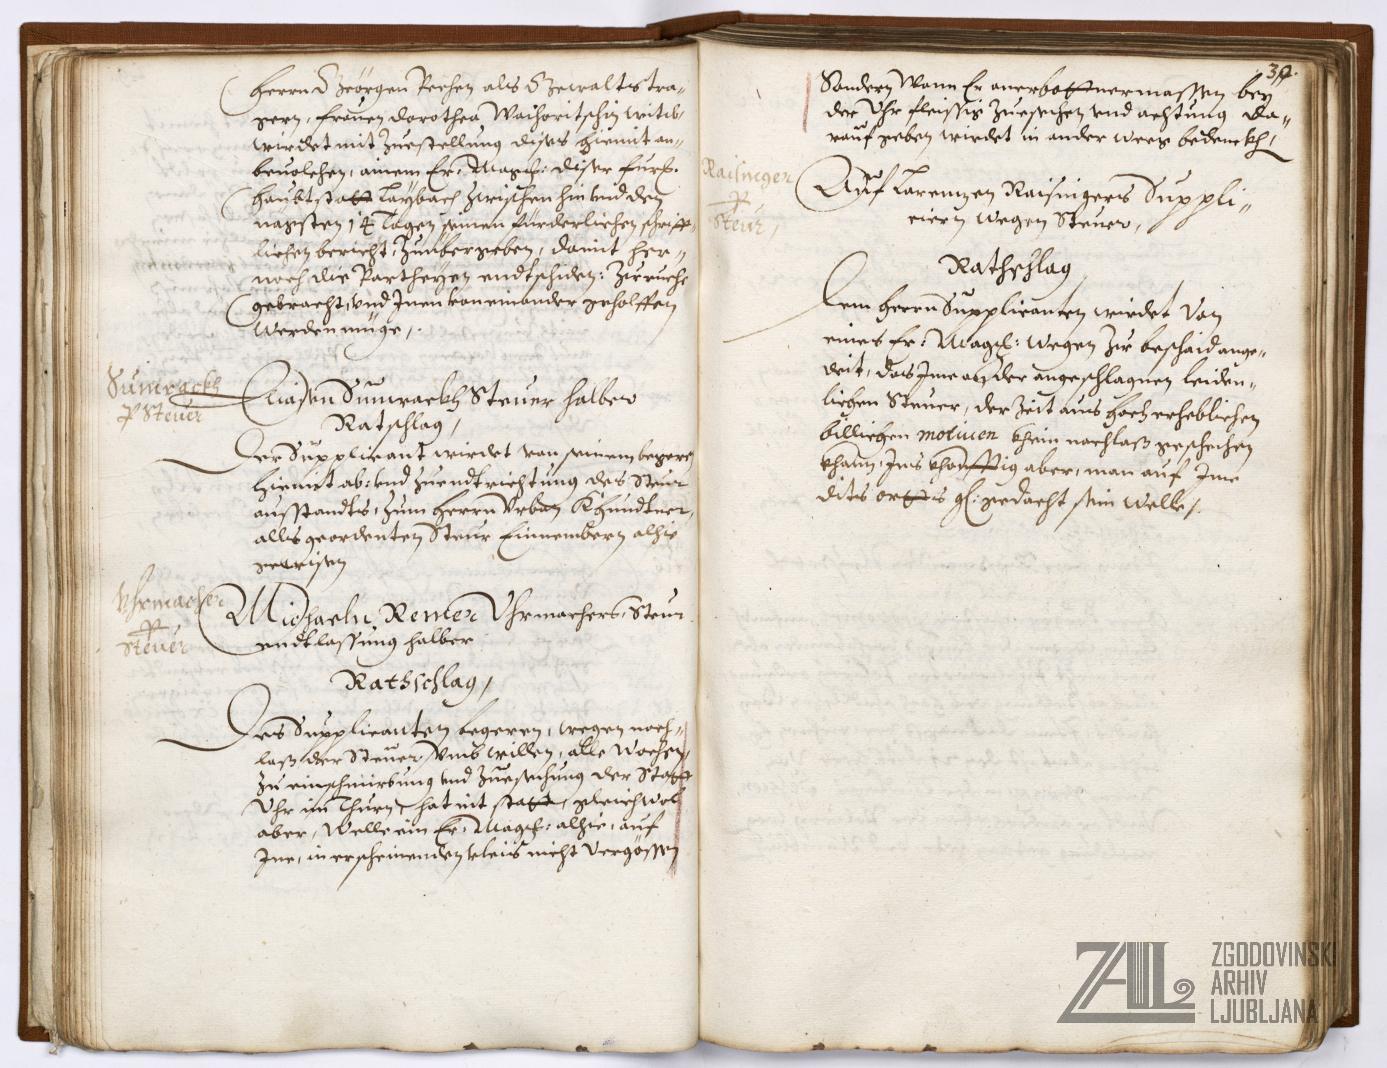 Herrn Geörgen Pechen als Gewaltstra=
gern, frauen Dorothea Waihoritschin witib,
wirdet mit Zuestellung dises hiemit an=
beuolchen, ainem Er: Mag: diser fürf.
haubtstatt Laybach zwischen hin vnd den
nagsten 14 Tagen, seinen fürderlichen schrifft=
lichen bericht, Zuübergeben, damit her=
nach die Partheyen endtschiden: Zurueche
gebracht, vnd Inen von einander geholffen
werden müge,
Sumrackh
P Steuer
Eliasen Sumrackh Steuer halber
Ratschlag,
Der Supplicant wirdet von seinem begern
hiemit ab: vnd zuendtrichtung des Steur
ausstandts, zum Herrn Vrban Khundtner,
alls geordenten Steur Einnembern alhie
gewisen
Vhrmacher
P
Steuer
Michaeln Remer Vhrmachers, Steur
endtlassung halber
Rathschlag,
Des Supplicanten begeren, wegen nach=
laß der Steuer, vmb willen, alle Wochen
Zu einschmirbung vnd Zuesechung der Statt
Vhr im Thurn, hat nit statt, gleichwol
aber, Welle ein Er: Mag: alhie, auf
Ine, in erscheinenden vleiis nicht vergössen
32.
Sondern Wann Er anerbottnermassen bey
der Vhr fleissig Zuesechen vnd achtung da=
rauf geben wirdet in ander weeg bedenckh,
Raisinger
P
Steur,
Auf Larenzen Raisingers Suppli=
ciern wegen Steuer,
Rathschlag
Dem Herrn Supplicanten wirdet Von
eines Er: Mag: wegen Zur beschaid ange=
deit, das Ime an der angeschlagnen leiden=
lichen Steuer, der Zeit aus hoch erheblichen
billichen motiuen khain nachlaß geschechen
khann, Ins khonfftig aber, man auf Ime
dits orts gl: gedacht sein welle,
ZAL
ZGODOVINSKI
ARHIV
LJUBLJANA